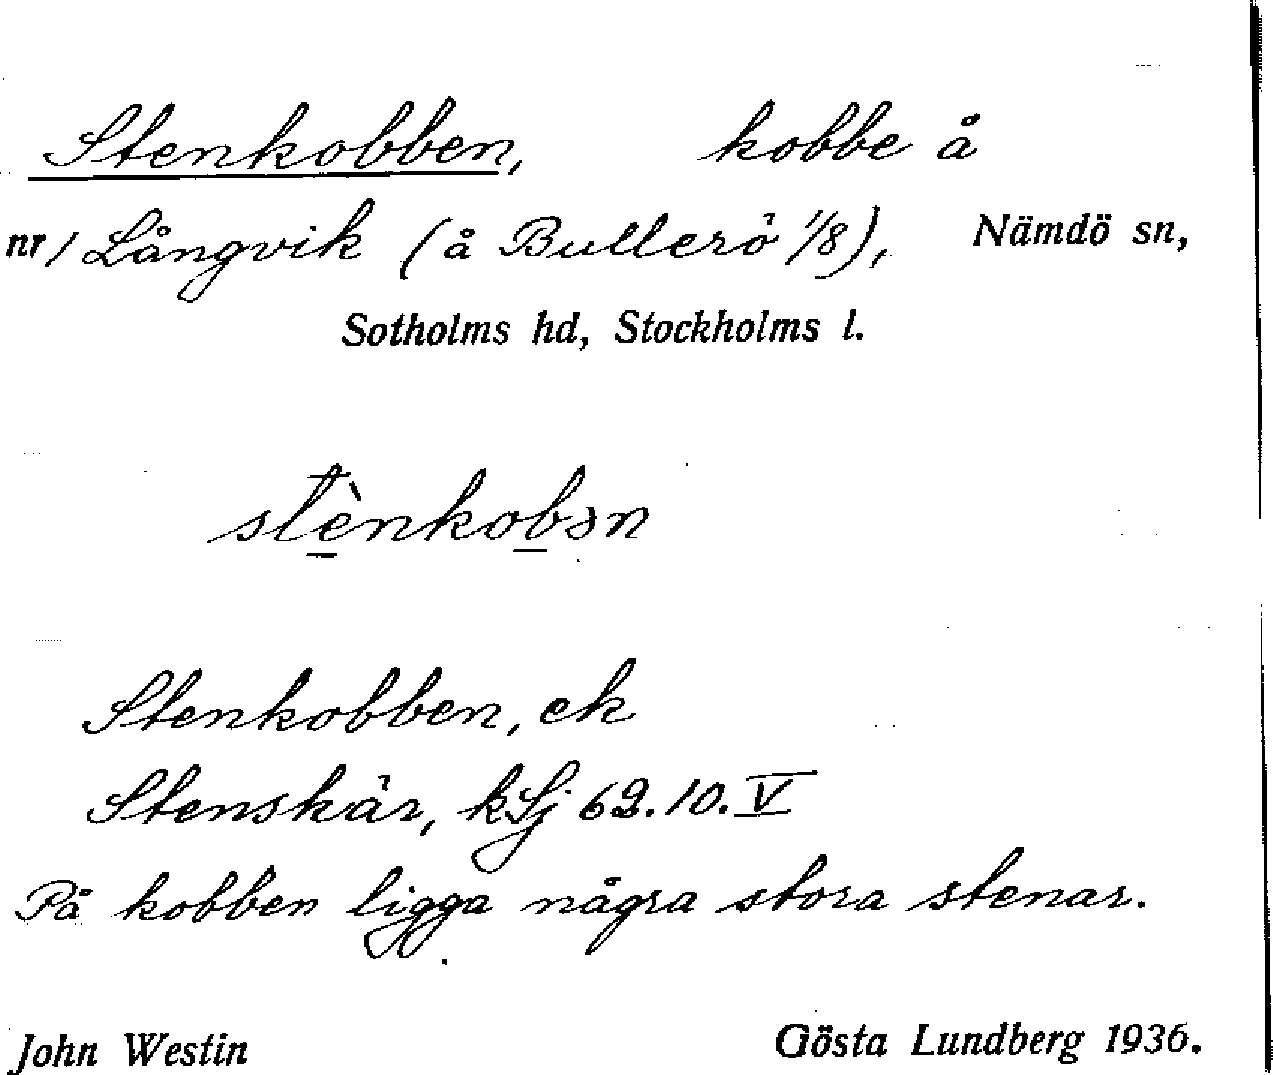 Stenkobben, kobbe å
nr/ Långvik (å Bullerö 1/8), Nämdö sn,
Sotholms hd, Stockholms l.
stènkobən
Stenkobben, ek
Stenskär, kSj 62.10.V
På kobben ligga några stora stenar.
John Westin Gösta Lundberg 1936.